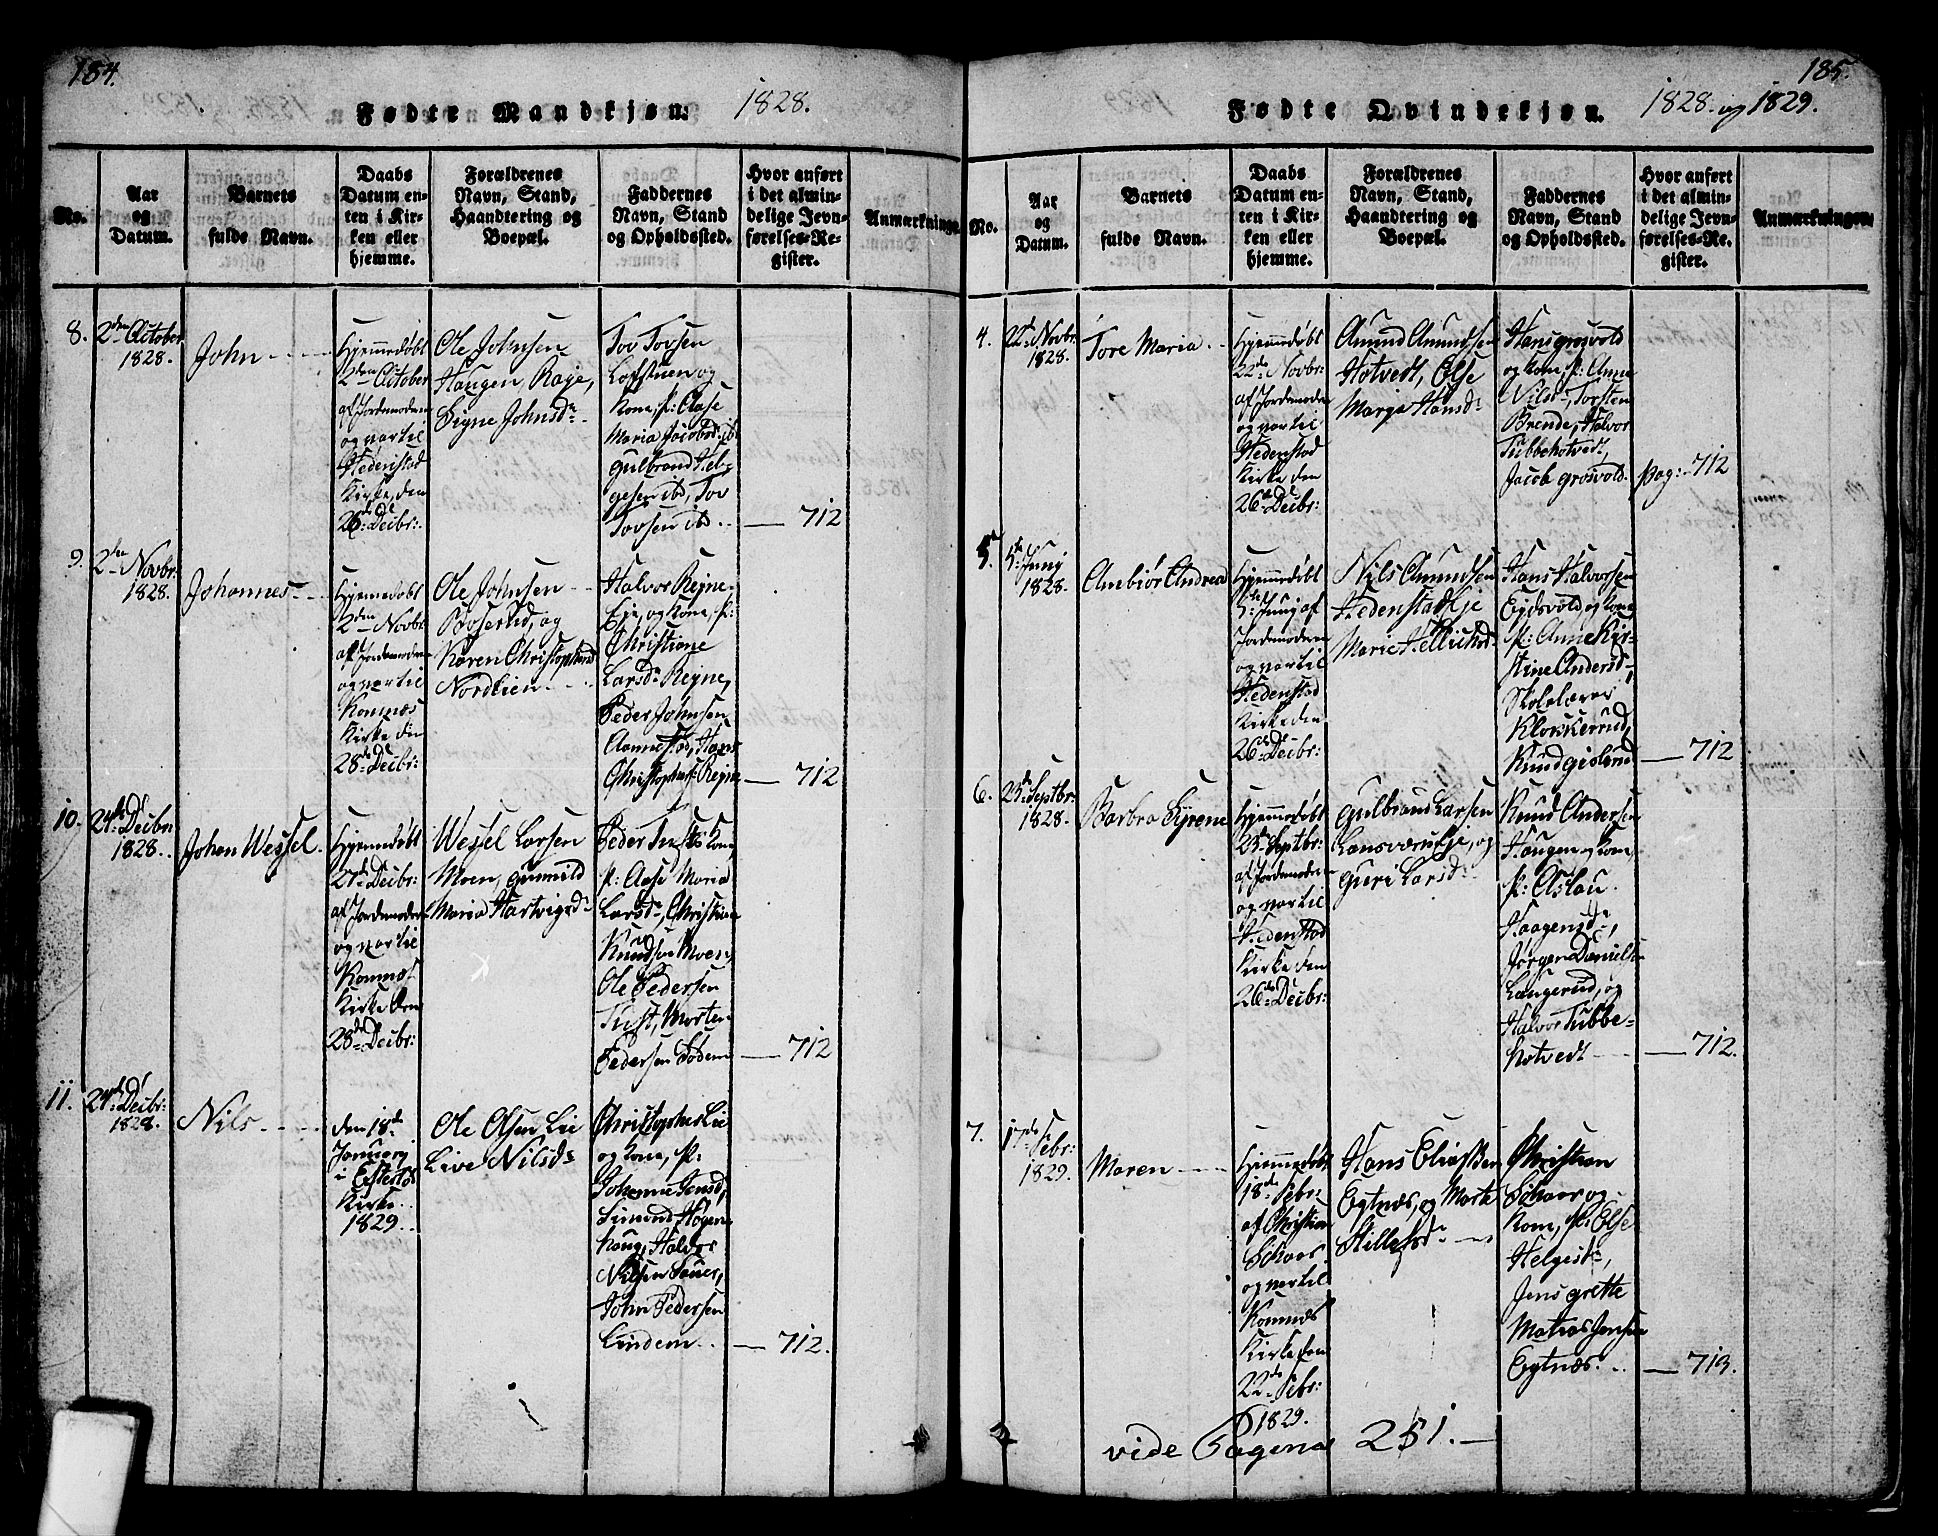 184.
Fødte Mandkjøn. 1828.
No.
Aar
og
Datum.
Barnets
fulde Navn.
Daabs
Datum en-
ten i Kir-
ken eller
hjemme.
Forældrenes
Navn, Stand,
Haandtering og
Boepæl.
Faddernes
Navn, Stand
og Opholdssted.
Hvor anført
i det almin-
delige Jevn-
førelses-Re-
gister.
Anmærkninge
8.
2den October
1828.
John
Hjemmedøbt
2den October
af Jordemoderen
og var til
Hedenstad
Kirke, den
26de Decbr:
Ole Johnsen
Haugen, Raje,
Signe Johnsdr
Tov Tovsen
Lofstuen og
Kone, p: Aase
Maria Jacobsd: ib
Gulbrand Hel-
gesen ibd, Tov
Tovsen ibd.
712
9.
2den Novbr:
1828.
Johannes
Hjemmedøbt
2den Novbr
af Jordemoderen
og var til
Komnæs
Kirke den
28de Decbr:
Ole Johnsen
Boserud, og
Karen Christophersd
Nordlien
Halvor Rejne,
Eje, og Kone, p:
Christiane
Larsdr Rejne,
Peder Johnsen
Aamestad, Hans
Christophers: Rejne
712
10.
24de Decbr
1828.
Johan Wessel.
Hjemmedøbt
27de Decbr:
af Jordemoderen
og var til
Komnæs
Kirke den
28de Decbr:
Wessel Larsen
Moen, Gunnild
Maria Hartvigsdr
Peder Tufts Kone,
p: Aase Maria
Larsdr, Christian
Knudsen Moen,
Ole Pedersen
Tufst, Morten
Pedersen Sodem
712
11.
24de Decbr:
1828.
Nils
den 18de
Januarij
i Efteløt
Kirke
1829.
Ole Olsen Lie
Live Nilsdr
Christopher Lie
og Kone, p:
Johanne Jensd,
Simend Høgen-
Haug, Halvor
Nilsen Sauer,
John Pedersen
Lindem
712.
185.
Fødte Qvindekjøn. 1828. og 1829.
No.
Aar
og
Datum.
Barnets
fulde Navn.
Daabs
Datum en-
ten i Kir-
ken eller
hjemme.
Forældrenes
Navn, Stand,
Haandtering og
Boepæl.
Faddernes
Navn, Stand
og Opholdssted.
Hvor anført
i det almin-
delige Jevn-
førelses-Re.
gister.
Anmærkningen
4.
22d Novbr:
1828.
Tore Maria
Hjemmedøbt
22de Novbr:
af Jordemoderen
og var til
Hedenstad
Kirke den
26de Decbr:
Amund Amundsen
Hotvedt, Else
Marja Hansdr
Hans Grosvold
og Kone, p: Anne
Nilsdr, Torsten
Brende, Halvor
Tubbehotvedt,
Jacob Grosvold.
Pag: 712
5.
5te Junij
1828.
Anbiør Andrea
Hjemmedøbt
5te Junij af
Jordemoderen
og var til
Hedenstad
Kirke den
26de Decbr:
Nils Amundsen
HedenstadEje
Marie Hellichsdr
Hans Halvorsen
Eydsvold, og Kone
p: Anne Kir-
stine Andersd,
Skolelærer
Klokkerud,
Knud Gisland
712
6.
25de Septbr:
1828.
Barbra Syrene
Hjemmedøbt
25de Septbr:
af Jordemoderen
og var til
Hedenstad
Kirke den
26de Decbr:
Gulbrand Larsen
Lansværk Eje, og
Guri Larsdr
Knud Andersen
Haugen og Kone,
p: Aslau
Haagensdr,
Jørgen Danielsen
Langerud, og
Halvor Tubbe-
hotvedt
712.
7.
17de Febr:
1829.
Maren
Hjemmedøbt
18de Febr:
af Christian
Schaar
og var til
Komnæs
Kirke den
22de Febr:
1829.
Hans Eliassen
Eytnæs, og Marte
Hillesdr
Christian
Schaar og
Kone, p: Else
Helgestr,
Jens Grette
Matias Jensen
Eytnæs.
713.
vide Pagina 251.